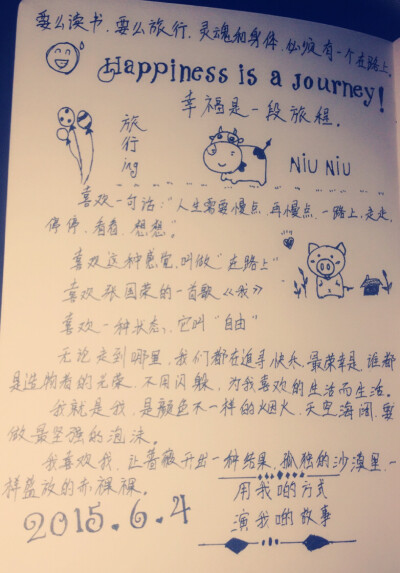 要么读书、要么旅行、灵魂和身体,必须有一个在路上。
Happiness is a Journey!
幸福是一段旅程。
旅
行
ing
NiU NiU
喜欢一句话:"人生需要慢点,再慢点,一路上,走走,
停停,看看,想想。"
喜欢这种感觉,叫做"在路上"
喜欢张国荣的一首歌《我》
喜欢一种状态,它叫"自由"
无论走到哪里,我们都在追寻快乐,最荣幸是,谁都
是造物者的光荣,不用闪躲,为我喜欢的生活而生活。
我就是我,是颜色不一样的烟火,天空海阔,要
做最坚强的泡沫。
我喜欢我,让蔷薇开出一种结果,孤独的沙漠里,一
样盛放的赤裸裸。
2015.6.4
用我的方式
演我的故事